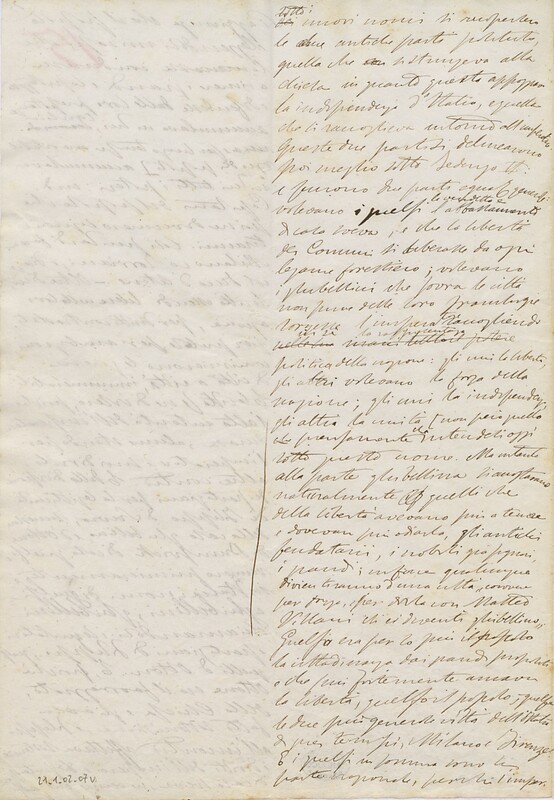 sotto
nuovi nomi si ricopersero
le due antiche parti politiche,
quella che si stringeva alla
chiesa in quanto questa appoggiava
la indipendenza d'Italia, e quella
che si raccoglieva intorno all'imperatore
Queste due parti si delinearono
poi meglio sotto Federigo II:
e furono due parti
volevano i guelfi l'abbassamento
di casa sveva, e che la libertà
dei Comuni si liberasse da ogni
legame forestiero; volevano
i ghibellini che sovra le città
non pure delle loro franchigie
sorgesse l'impero raccogliendo
politica della nazione: gli uni la libertà,
gli altri volevano la forza della
nazione; gli uni la indipendenza,
gli altri la unità, non però quella
che intendesi oggi
sotto questo nome. Ma intanto
alla parte ghibellina s'accostarono
naturalmente quelli che
della libertà avevano più a temere
e dovevan più odiarla, gli antichi
feudatari, i nobili
i grandi; in fine qualunque
diventi tiranno d'una città, conviene
per forza, per dirla con Matteo
Villani ch'ei diventi ghibellino.
Guelfo era per lo più il popolo
la cittadinanza dai grandi
e che più fortemente amava
la libertà, guelfo il popolo; guelfe
le due più generose città dell'Italia
di quei tempi, Milano e Firenze.
E i guelfi in somma sono la
parte nazionale, perchè l'imper.
21.1.02.07v